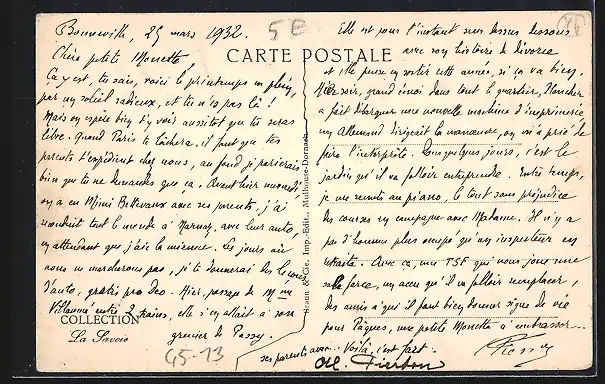 Bonneville, 25 mars 1932.
5 E
CARTE POSTALE
Chère petite Monette
Ça y est, tu sais, voici le printemps en plein,
par un soleil radieux, et tu n'es pas là !
Mais on espère bien t'y voir aussitôt que tu seras
libre. Quand Paris te lâchera, il faut que tes
parents t'expédient chez nous, au fond je parierais
bien que tu ne demandes que ça. Avant hier mercredi,
on a eu Mimi Bellevaux avec ses parents, j'ai
conduit tout le monde à Marnaz, avec leur auto,
en attendant que j'aie la mienne. Ces jours où
nous ne marderons pas, je te donnerai des leçons
d'auto, gratis pro Deo. Hier, passage de Mme
Villaumé entre 2 trains, elle s'en allait à son
grenier de Passy.
COLLECTION
La Savoie
45-13
Braun & Cie, Imp.-Edit., Mulhouse-Dornach
Elle est pour l'instant sens dessus dessous
avec son histoire de divorce
et elle pense en sortir cette année, si ça va bien.
Hier soir, grand émoi dans tout le quartier, Plancher
a fait débarquer une nouvelle machine d'imprimerie,
un Allemand dirigeait la manœuvre, on m'a prié de
faire l'interprète. Dans quelques jours, c'est le
jardin qu'il va falloir entreprendre. Entre temps,
je me remets au piano, le tout sans préjudice
des courses en campagne avec Madame. Il n'y a
pas d'homme plus occupé qu'un inspecteur en
retraite. Avec ça, une TSF qui nous joue une
sale farce, un accu qu'il va falloir remplacer,
des amis à qui il faut bien donner signe de vie
pour Pâques, une petite Monette à embrasser...
ses parents aussi. Voilà, c'est fait.